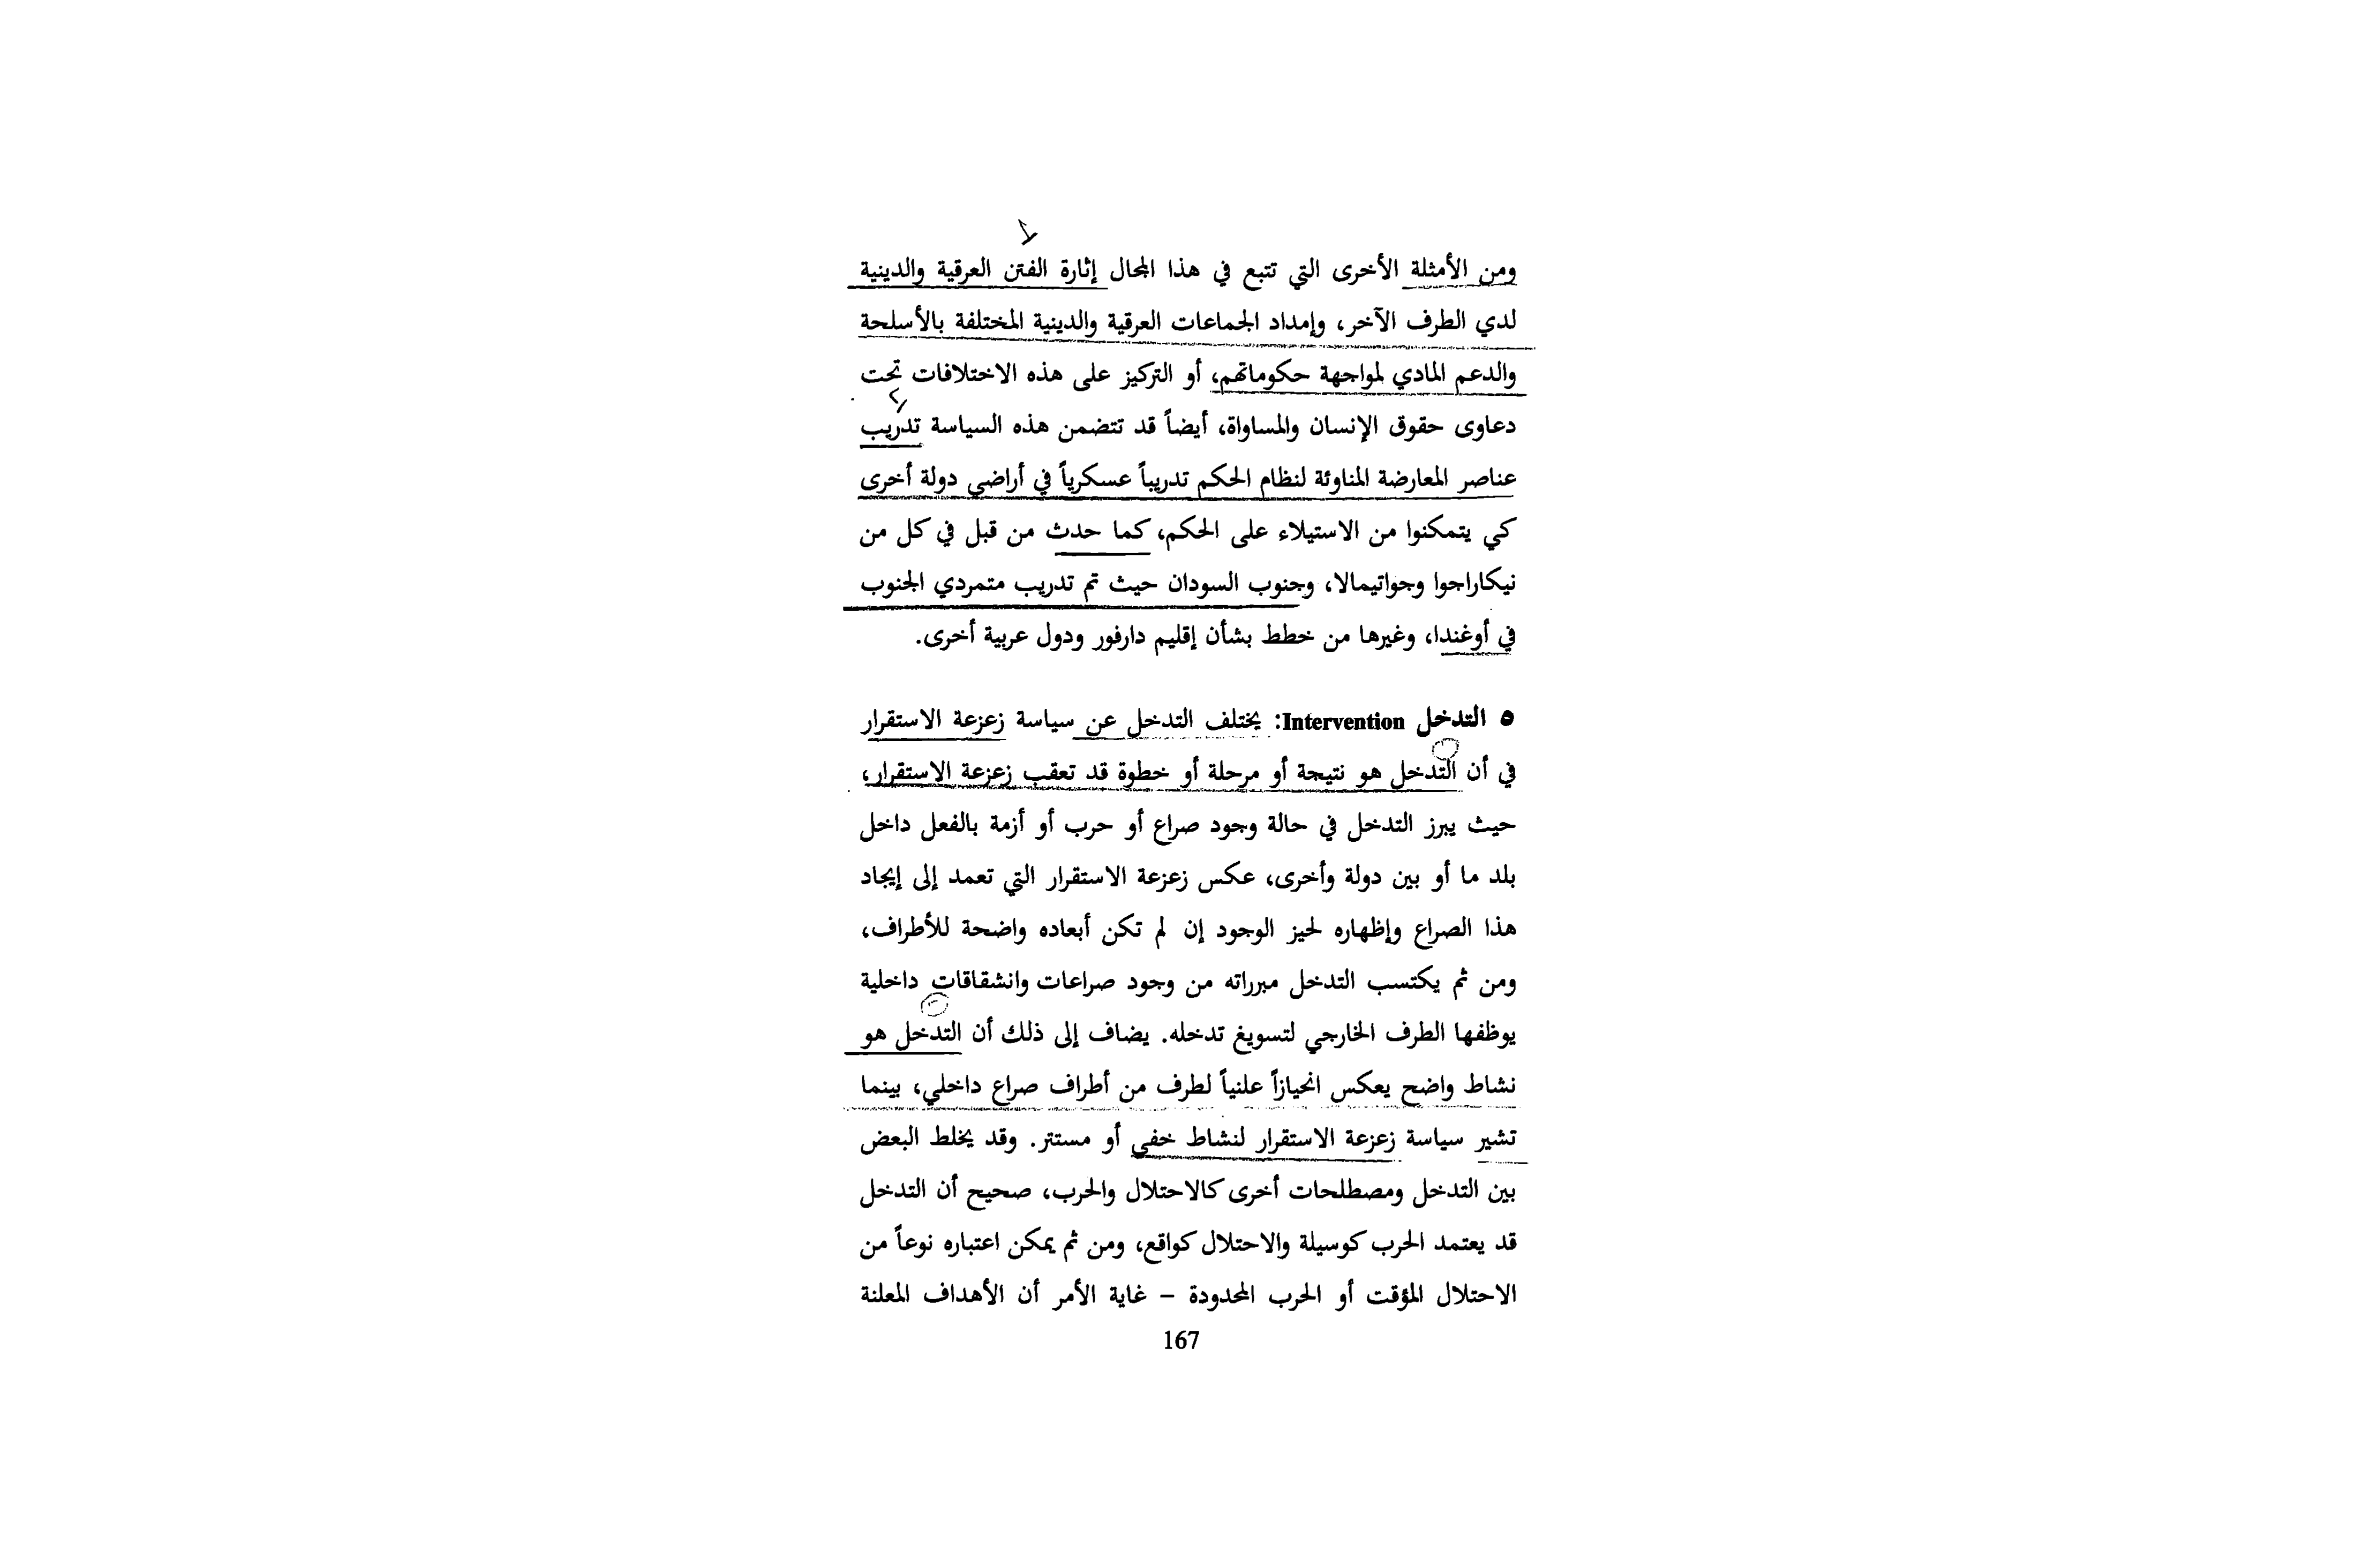 ومن الأمثلة الأخرى التي تتبع في هذا المجال إثارة الفتن العرقية والدينية
لدي الطرف الآخر، وإمداد الجماعات العرقية والدينية المختلفة بالأسلحة
والدعم المادي لمواجهة حكوماتهم، أو التركيز على هذه الاختلافات تحت
دعاوى حقوق الإنسان والمساواة، أيضاً قد تتضمن هذه السياسة تدريب
عناصر المعارضة المناوئة لنظام الحكم تدريباً عسكرياً في أراضي دولة أخرى
كي يتمكنوا من الاستيلاء على الحكم، كما حدث من قبل في كل من
نيكاراجوا وجواتيمالا، وجنوب السودان حيث تم تدريب متمردي الجنوب
في أوغندا، وغيرها من خطط بشأن إقليم دارفور ودول عربية أخرى.
٥ التدخل Intervention: يختلف التدخل عن سياسة زعزعة الاستقرار
في أن التدخل هو نتيجة أو مرحلة أو خطوة قد تعقب زعزعة الاستقرار،
حيث يبرز التدخل في حالة وجود صراع أو حرب أو أزمة بالفعل داخل
بلد ما أو بين دولة وأخرى، عكس زعزعة الاستقرار التي تعمد إلى إيجاد
هذا الصراع وإظهاره لحيز الوجود إن لم تكن أبعاده واضحة للأطراف،
ومن ثم يكتسب التدخل مبرراته من وجود صراعات وانشقاقات داخلية
يوظفها الطرف الخارجي لتسويغ تدخله. يضاف إلى ذلك أن التدخل هو
نشاط واضح يعكس انحيازاً علنياً لطرف من أطراف صراع داخلي، بينما
تشير سياسة زعزعة الاستقرار لنشاط خفي أو مستتر. وقد يخلط البعض
بين التدخل ومصطلحات أخرى كالاحتلال والحرب، صحيح أن التدخل
قد يعتمد الحرب كوسيلة والاحتلال كواقع، ومن ثم يمكن اعتباره نوعاً من
الاحتلال المؤقت أو الحرب المحدودة – غاية الأمر أن الأهداف المعلنة
167